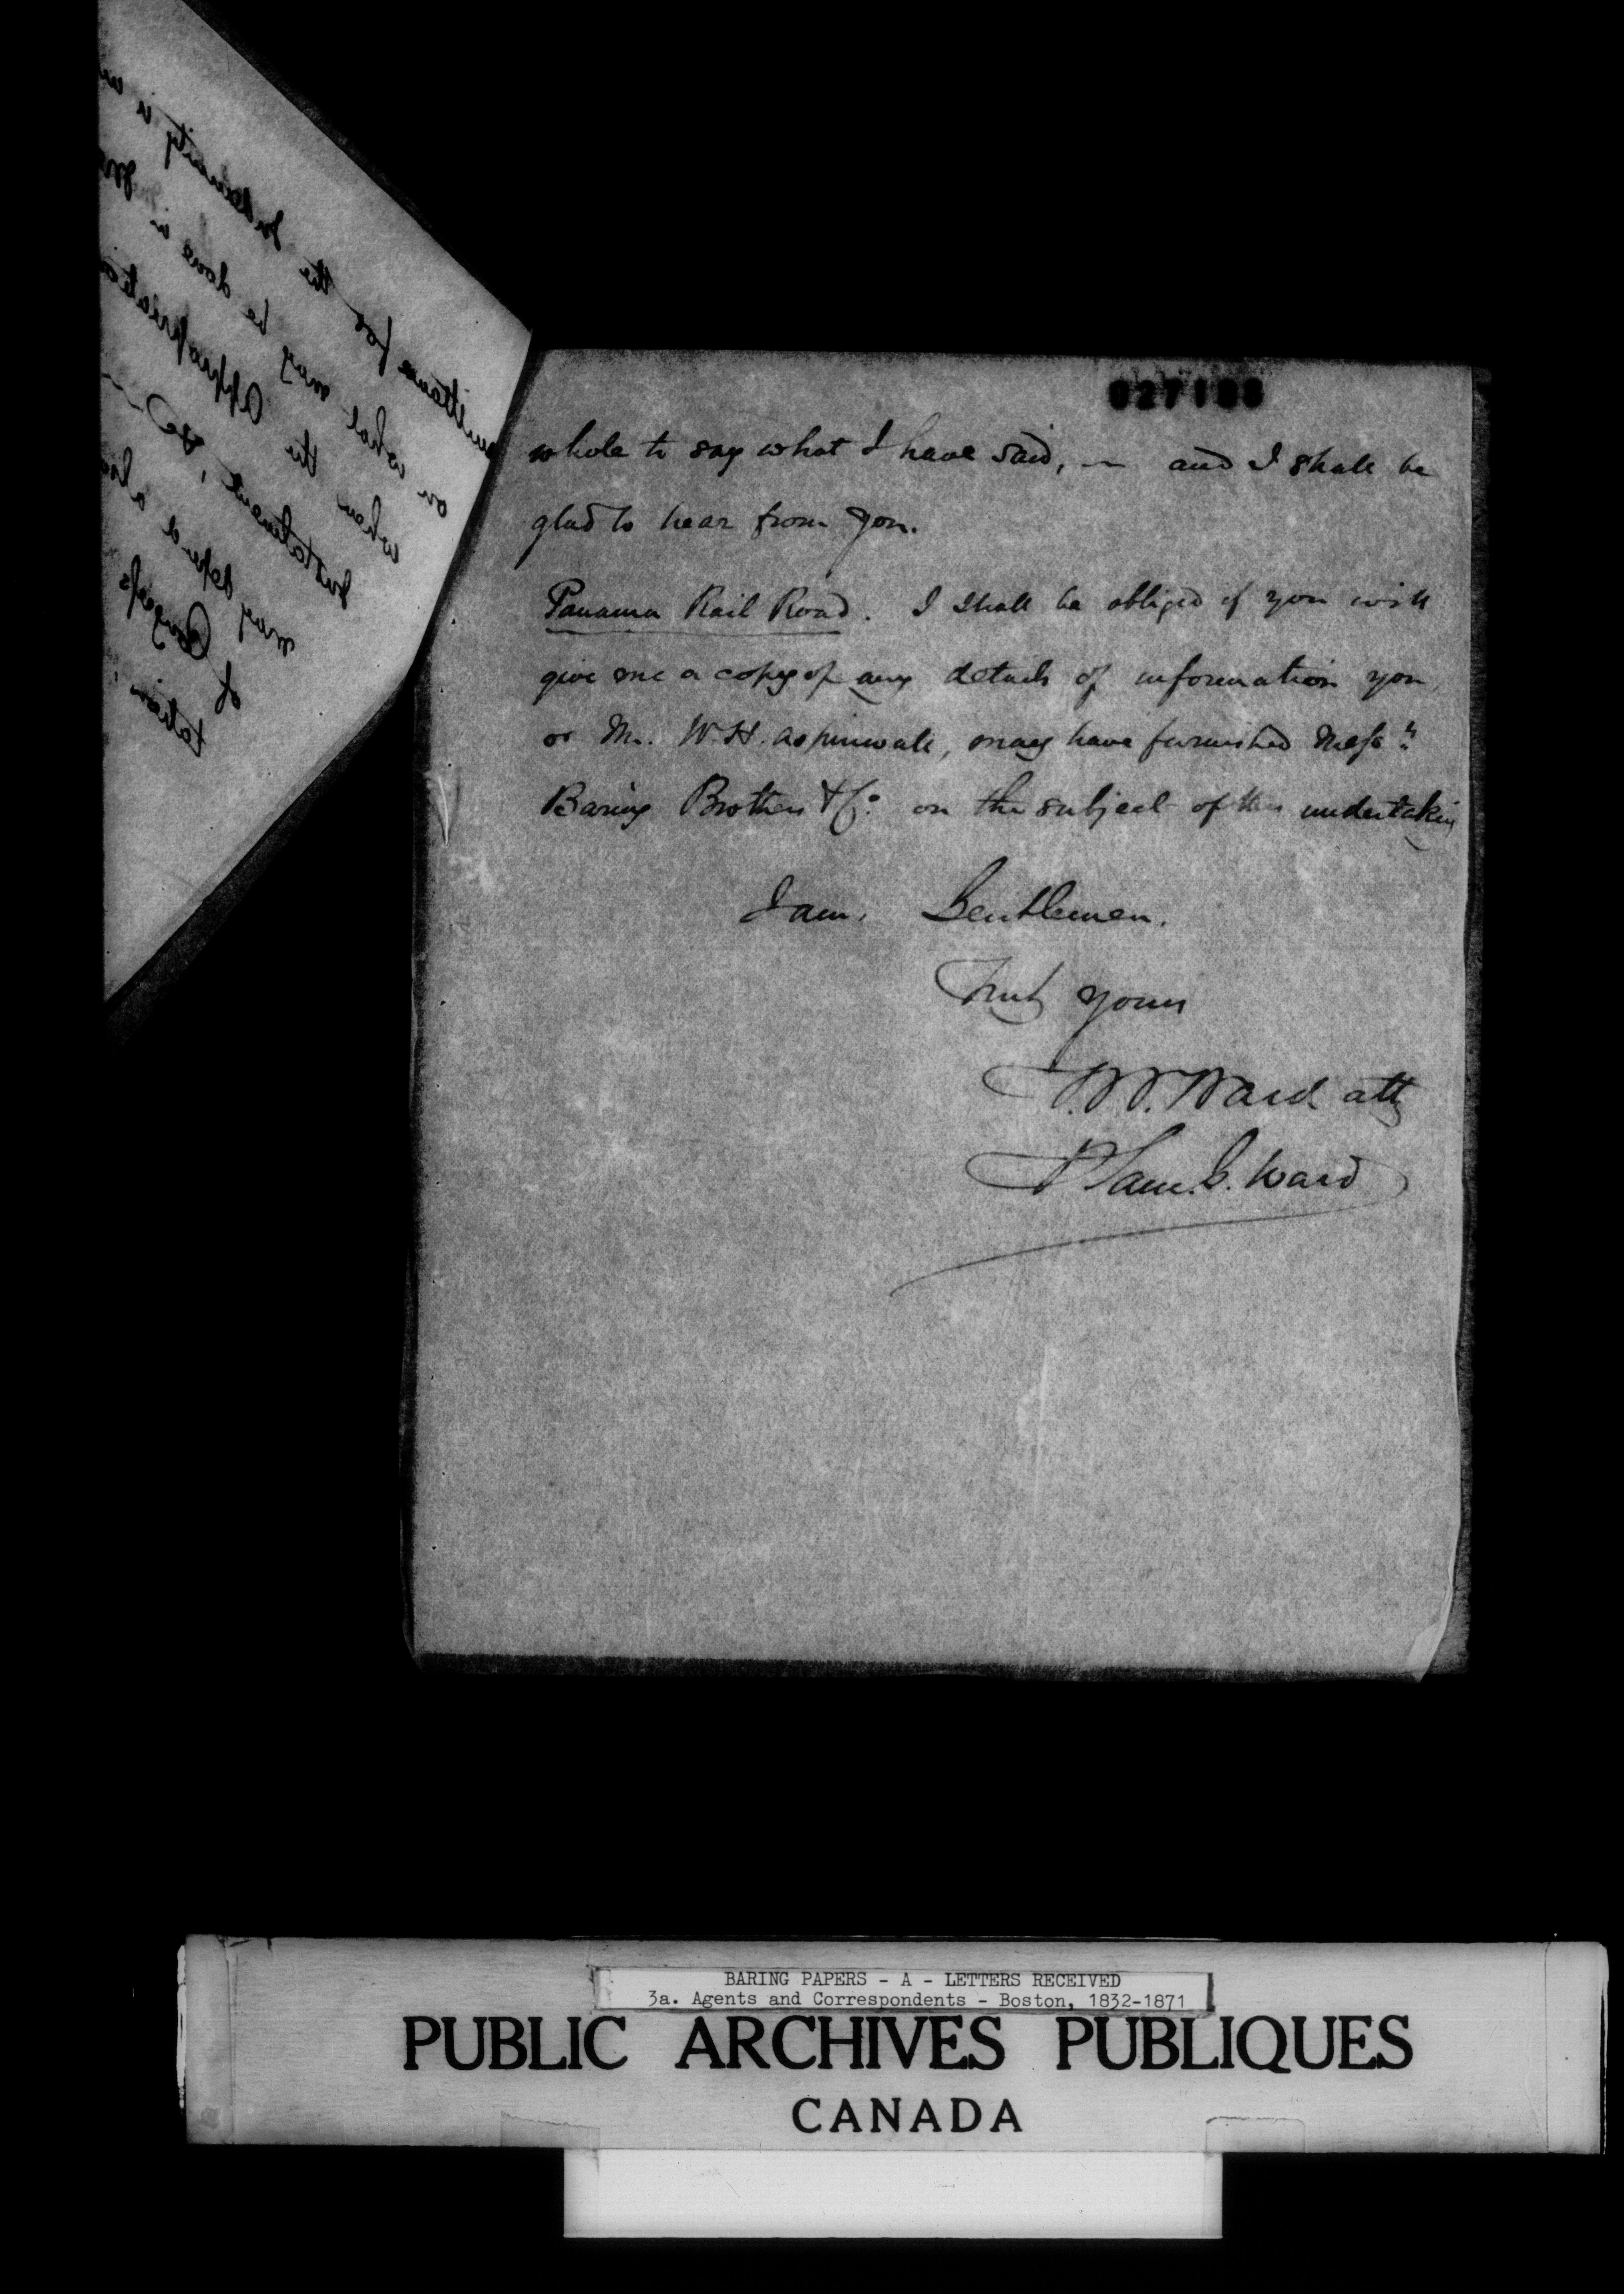 027188
whole to say what I have said, — and I shall be
glad to hear from you.
Panama Rail Road. I shall be obliged if you will
give me a copy of any details of information you,
or Mr. W. H. Aspinwall, may have furnished Messrs
Baring Brothers & Co. on the subject of this undertaking
I am, Gentlemen,
Truly yours
T. W. Ward atty
P Sam. G. Ward
mittance for the Indemnity is
on what may be done in
when the appropriation
Instalment, &c
may depend also
of Congress
tation
BARING PAPERS - A - LETTERS RECEIVED
3a. Agents and Correspondents - Boston, 1832-1871
PUBLIC ARCHIVES PUBLIQUES
CANADA